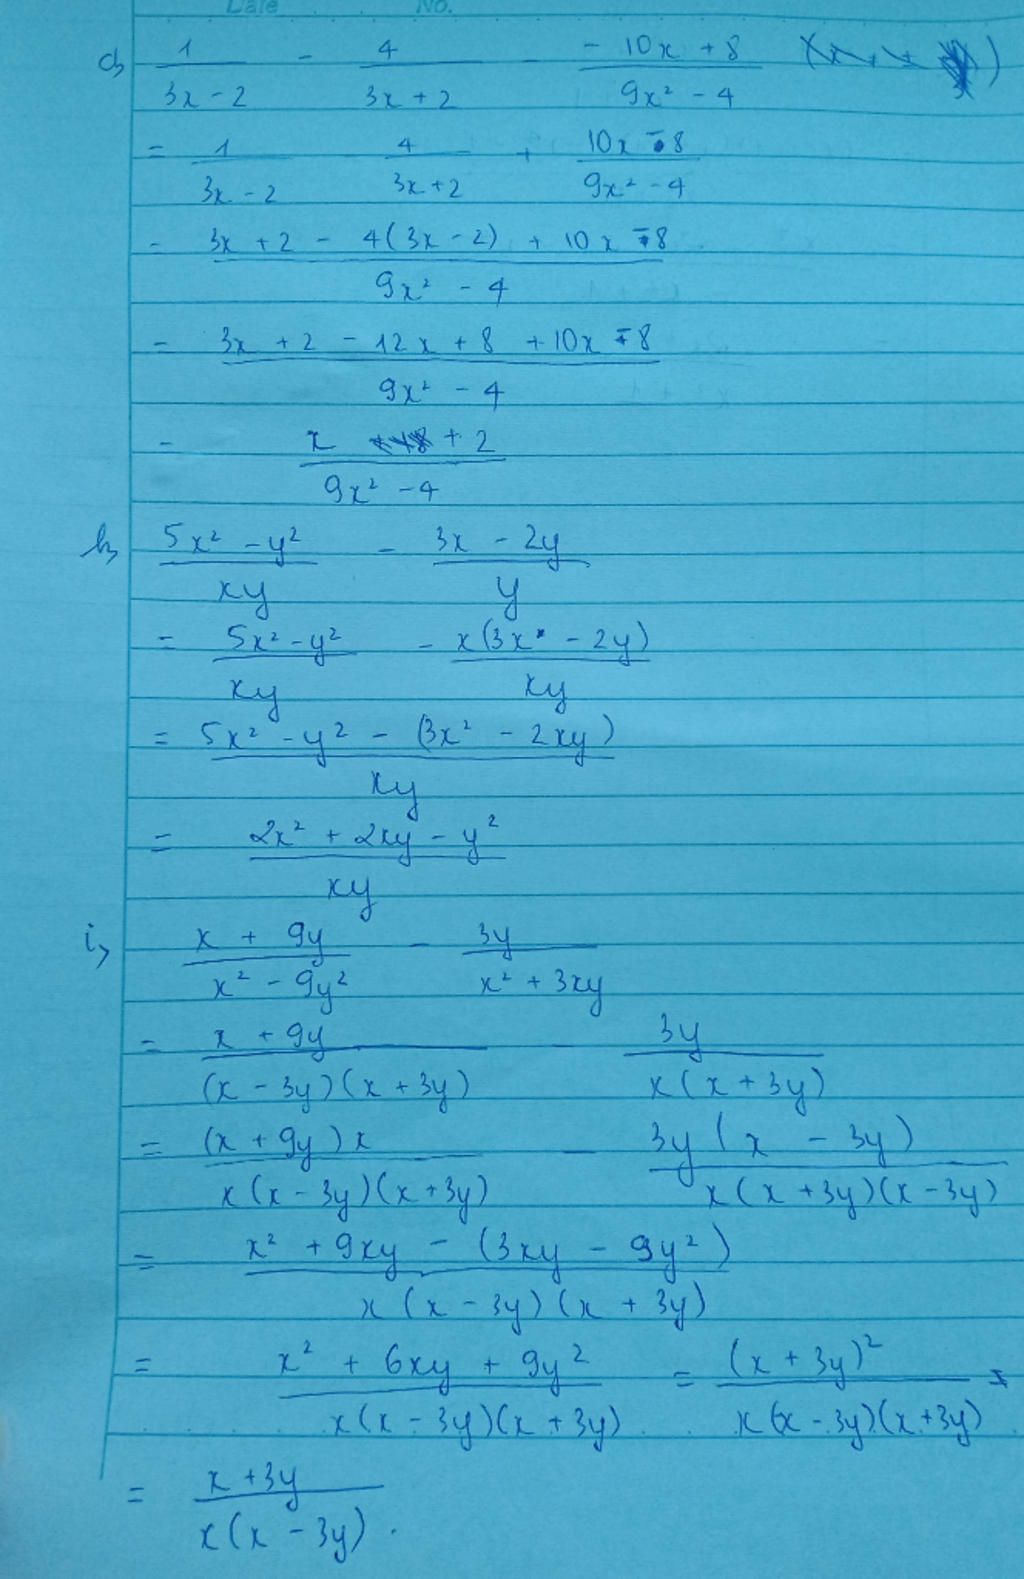 Date No.
c, 1/(3x - 2) - 4/(3x + 2) - (-10x + 8)/(9x² - 4)
= 1/(3x - 2) 4/(3x + 2) + (10x - 8)/(9x² - 4)
= (3x + 2 - 4(3x - 2) + 10x - 8)/(9x² - 4)
= (3x + 2 - 12x + 8 + 10x - 8)/(9x² - 4)
= (x + 2)/(9x² - 4)
h, (5x² - y²)/(xy) - (3x - 2y)/y
= (5x² - y²)/(xy) - x(3x - 2y)/(xy)
= (5x² - y² - (3x² - 2xy))/(xy)
= (2x² + 2xy - y²)/(xy)
i, (x + 9y)/(x² - 9y²) - 3y/(x² + 3xy)
= (x + 9y)/((x - 3y)(x + 3y)) - 3y/(x(x + 3y))
= (x + 9y)x/(x(x - 3y)(x + 3y)) - 3y(x - 3y)/(x(x + 3y)(x - 3y))
= (x² + 9xy - (3xy - 9y²))/(x(x - 3y)(x + 3y))
= (x² + 6xy + 9y²)/(x(x - 3y)(x + 3y)) = (x + 3y)²/(x(x - 3y)(x + 3y)) =
= (x + 3y)/(x(x - 3y)).